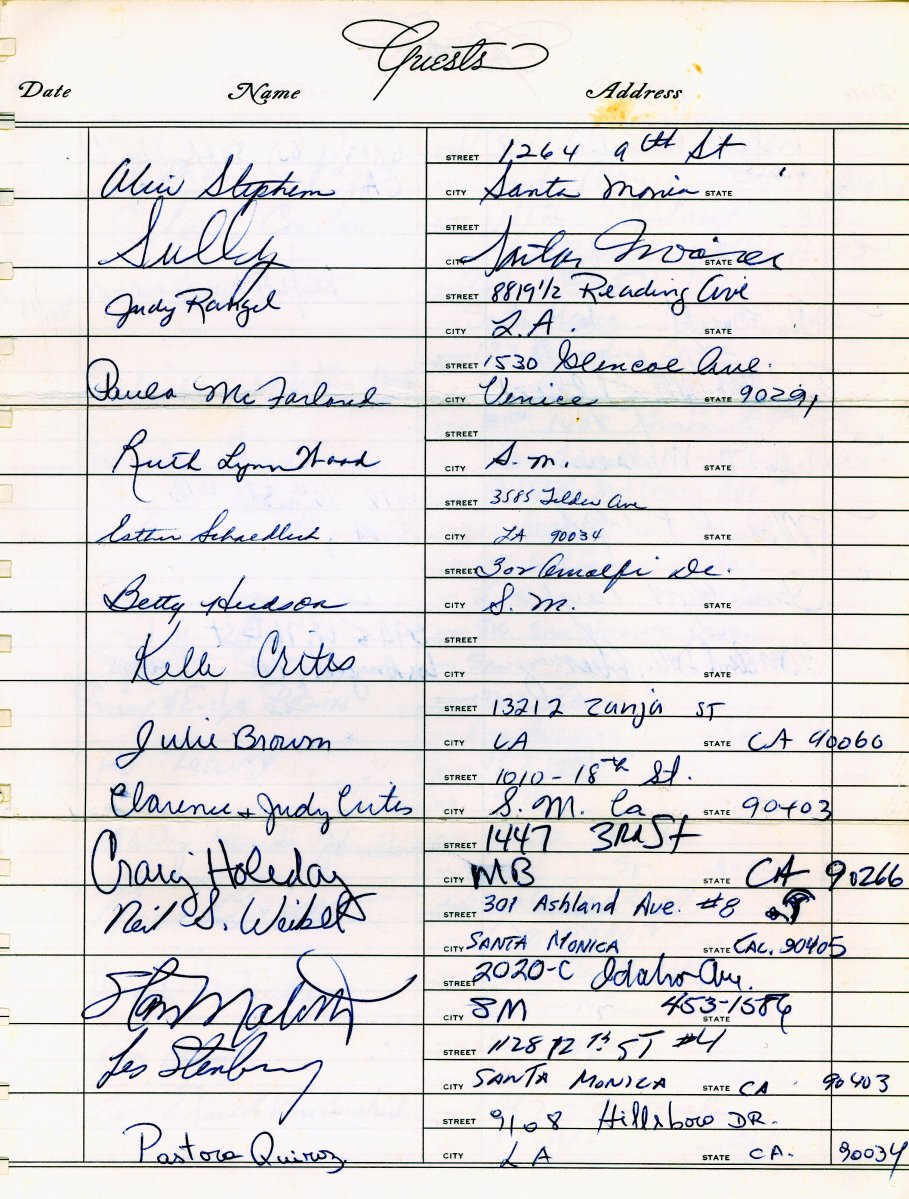 Guests
Date Name Address
STREET 1264 9th St
Alice Stephens CITY Santa Monica STATE
STREET
Sully CITY Santa Monica STATE
STREET 8819 1/2 Reading Ave
Judy Rangel CITY L.A. STATE
STREET 1530 Glencoe Ave.
Paula McFarland CITY Venice STATE 90291
STREET
Ruth Lynn Wood CITY S.M. STATE
STREET 3585 Tilden Ave
Esther Schaedlich CITY LA 90034 STATE
STREET 302 Amalfi Dr.
Betty Hudson CITY S.M. STATE
STREET
Kelle Crites CITY STATE
STREET 13212 Zanja ST
Julie Brown CITY LA STATE CA 90060
STREET 1010-18th St.
Clarence & Judy Crites CITY S.M. Ca STATE 90403
STREET 1447 3RD St
Craig Holeday CITY MB STATE CA 90266
STREET 301 Ashland Ave. #8
Neil S. Weibel CITY SANTA MONICA STATE CAL. 90405
STREET 2020-C Idaho Ave.
Stan CITY SM 453-1586 STATE
STREET 1128 12th ST #4
Les CITY SANTA MONICA STATE CA 90403
STREET 9108 Hillsboro DR.
Pastora Quiroz CITY LA STATE CA. 90034